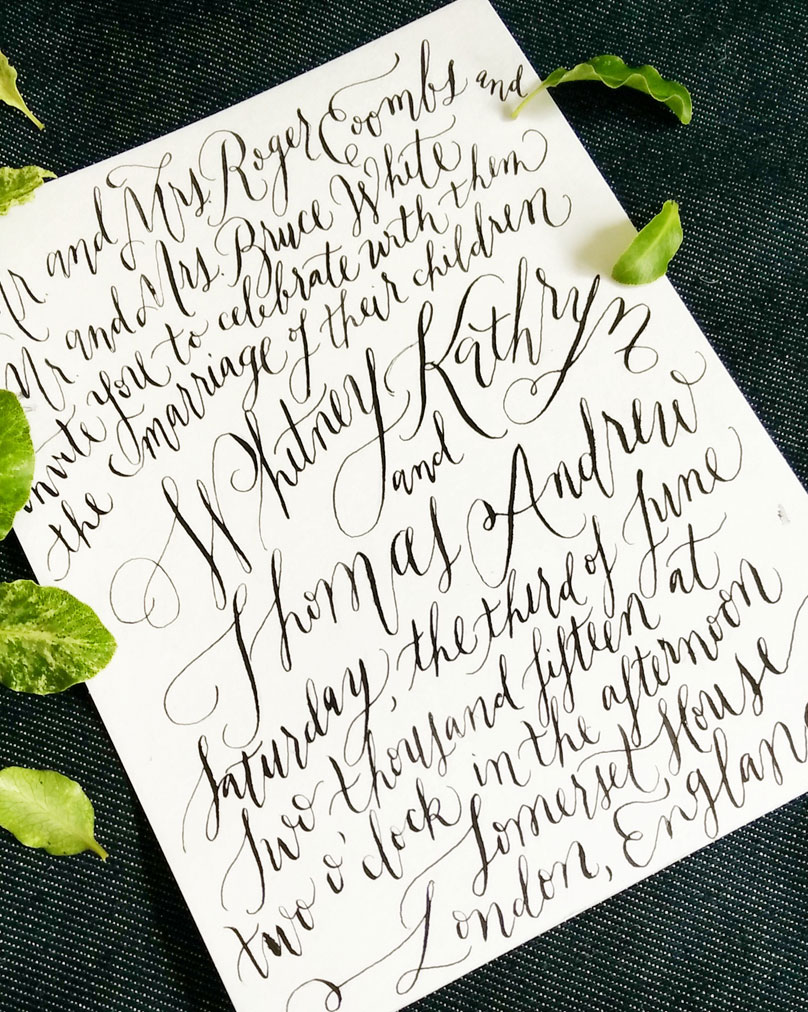 Mr. and Mrs. Roger Coombs and
Mr. and Mrs. Bruce White
invite you to celebrate with them
the marriage of their children
Whitney Kathryn
and
Thomas Andrew
Saturday, the third of June
two thousand fifteen at
two o'clock in the afternoon
Somerset House
London, England